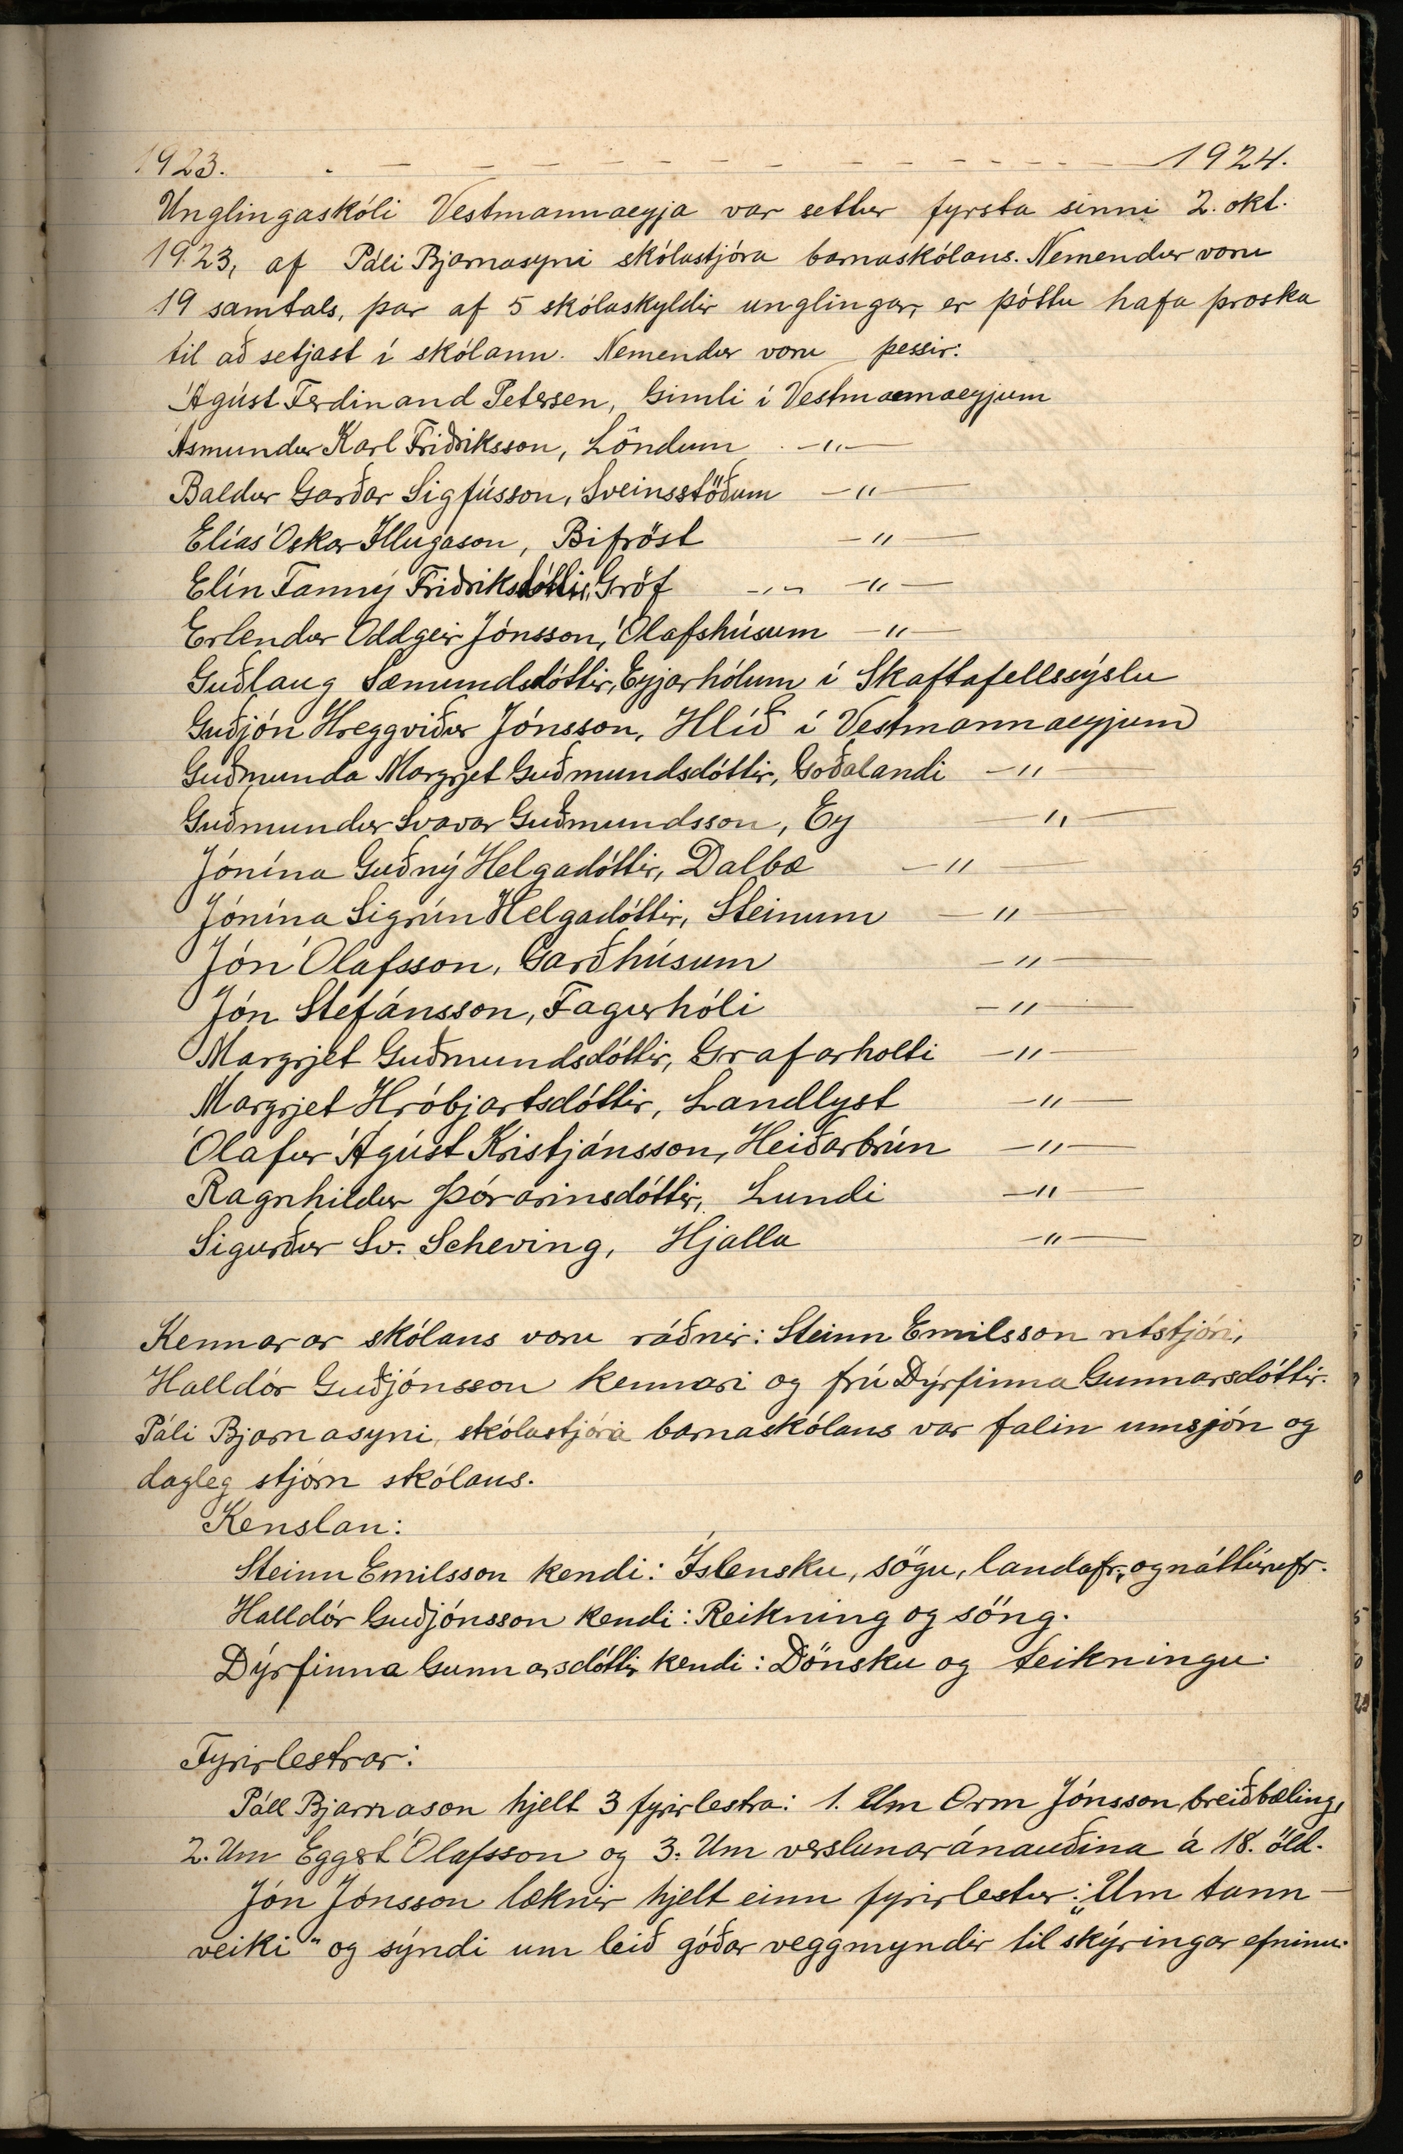 1923. — — — — — — — — — — — — 1924.
Unglingaskóli Vestmannaeyja var settur fyrsta sinni 2. okt.
1923, af Páli Bjarnasyni skólastjóra barnaskólans. Nemendur voru
19 samtals, þar af 5 skólaskyldir unglingar, er þóttu hafa þroska
til að setjast í skólann. Nemendur voru þessir:
Ágúst Ferdinand Petersen, Gimli í Vestmannaeyjum
Ásmundur Karl Friðriksson, Löndum —"—
Baldur Garðar Sigfússon, Sveinsstöðum —"—
Elías Óskar Illugason, Bifröst —"—
Elín Fanný Friðriksdóttir, Gröf —"— —"—
Erlendur Oddgeir Jónsson, Ólafshúsum —"—
Guðlaug Sæmundsdóttir, Eyjarhólum í Skaftafellssýslu
Guðjón Hreggviður Jónsson, Hlíð í Vestmannaeyjum
Guðmunda Margrjet Guðmundsdóttir, Goðalandi —"—
Guðmundur Svavar Guðmundsson, Ey —"—
Jónína Guðný Helgadóttir, Dalbæ —"—
Jónína Sigrún Helgadóttir, Steinum —"—
Jón Ólafsson, Garðhúsum —"—
Jón Stefánsson, Fagurhóli —"—
Margrjet Guðmundsdóttir, Grafarholti —"—
Margrjet Hróbjartsdóttir, Landlyst —"—
Ólafur Ágúst Kristjánsson, Heiðarbrún —"—
Ragnhildur Þórarinsdóttir, Lundi —"—
Sigurður Sv. Scheving, Hjalla —"—
Kennarar skólans voru ráðnir: Steinn Emilsson ritstjóri,
Halldór Guðjónsson kennari og frú Dýrfinna Gunnarsdóttir.
Páli Bjarnasyni, skólastjóra barnaskólans var falin umsjón og
dagleg stjórn skólans.
Kenslan:
Steinn Emilsson kendi: Íslensku, sögu, landafr., og náttúrufr.
Halldór Guðjónsson kendi: Reikning og söng.
Dýrfinna Gunnarsdóttir kendi: Dönsku og teikningu.
Fyrirlestrar:
Páll Bjarnason hjelt 3 fyrirlestra: 1. Um Orm Jónsson breiðbæling,
2. Um Eggert Ólafsson og 3. Um verslunaránauðina á 18. öld.
Jón Jónsson læknir hjelt einn fyrirlestur: „Um tann-
veiki" og sýndi um leið góðar veggmyndir til skýringar efninu.